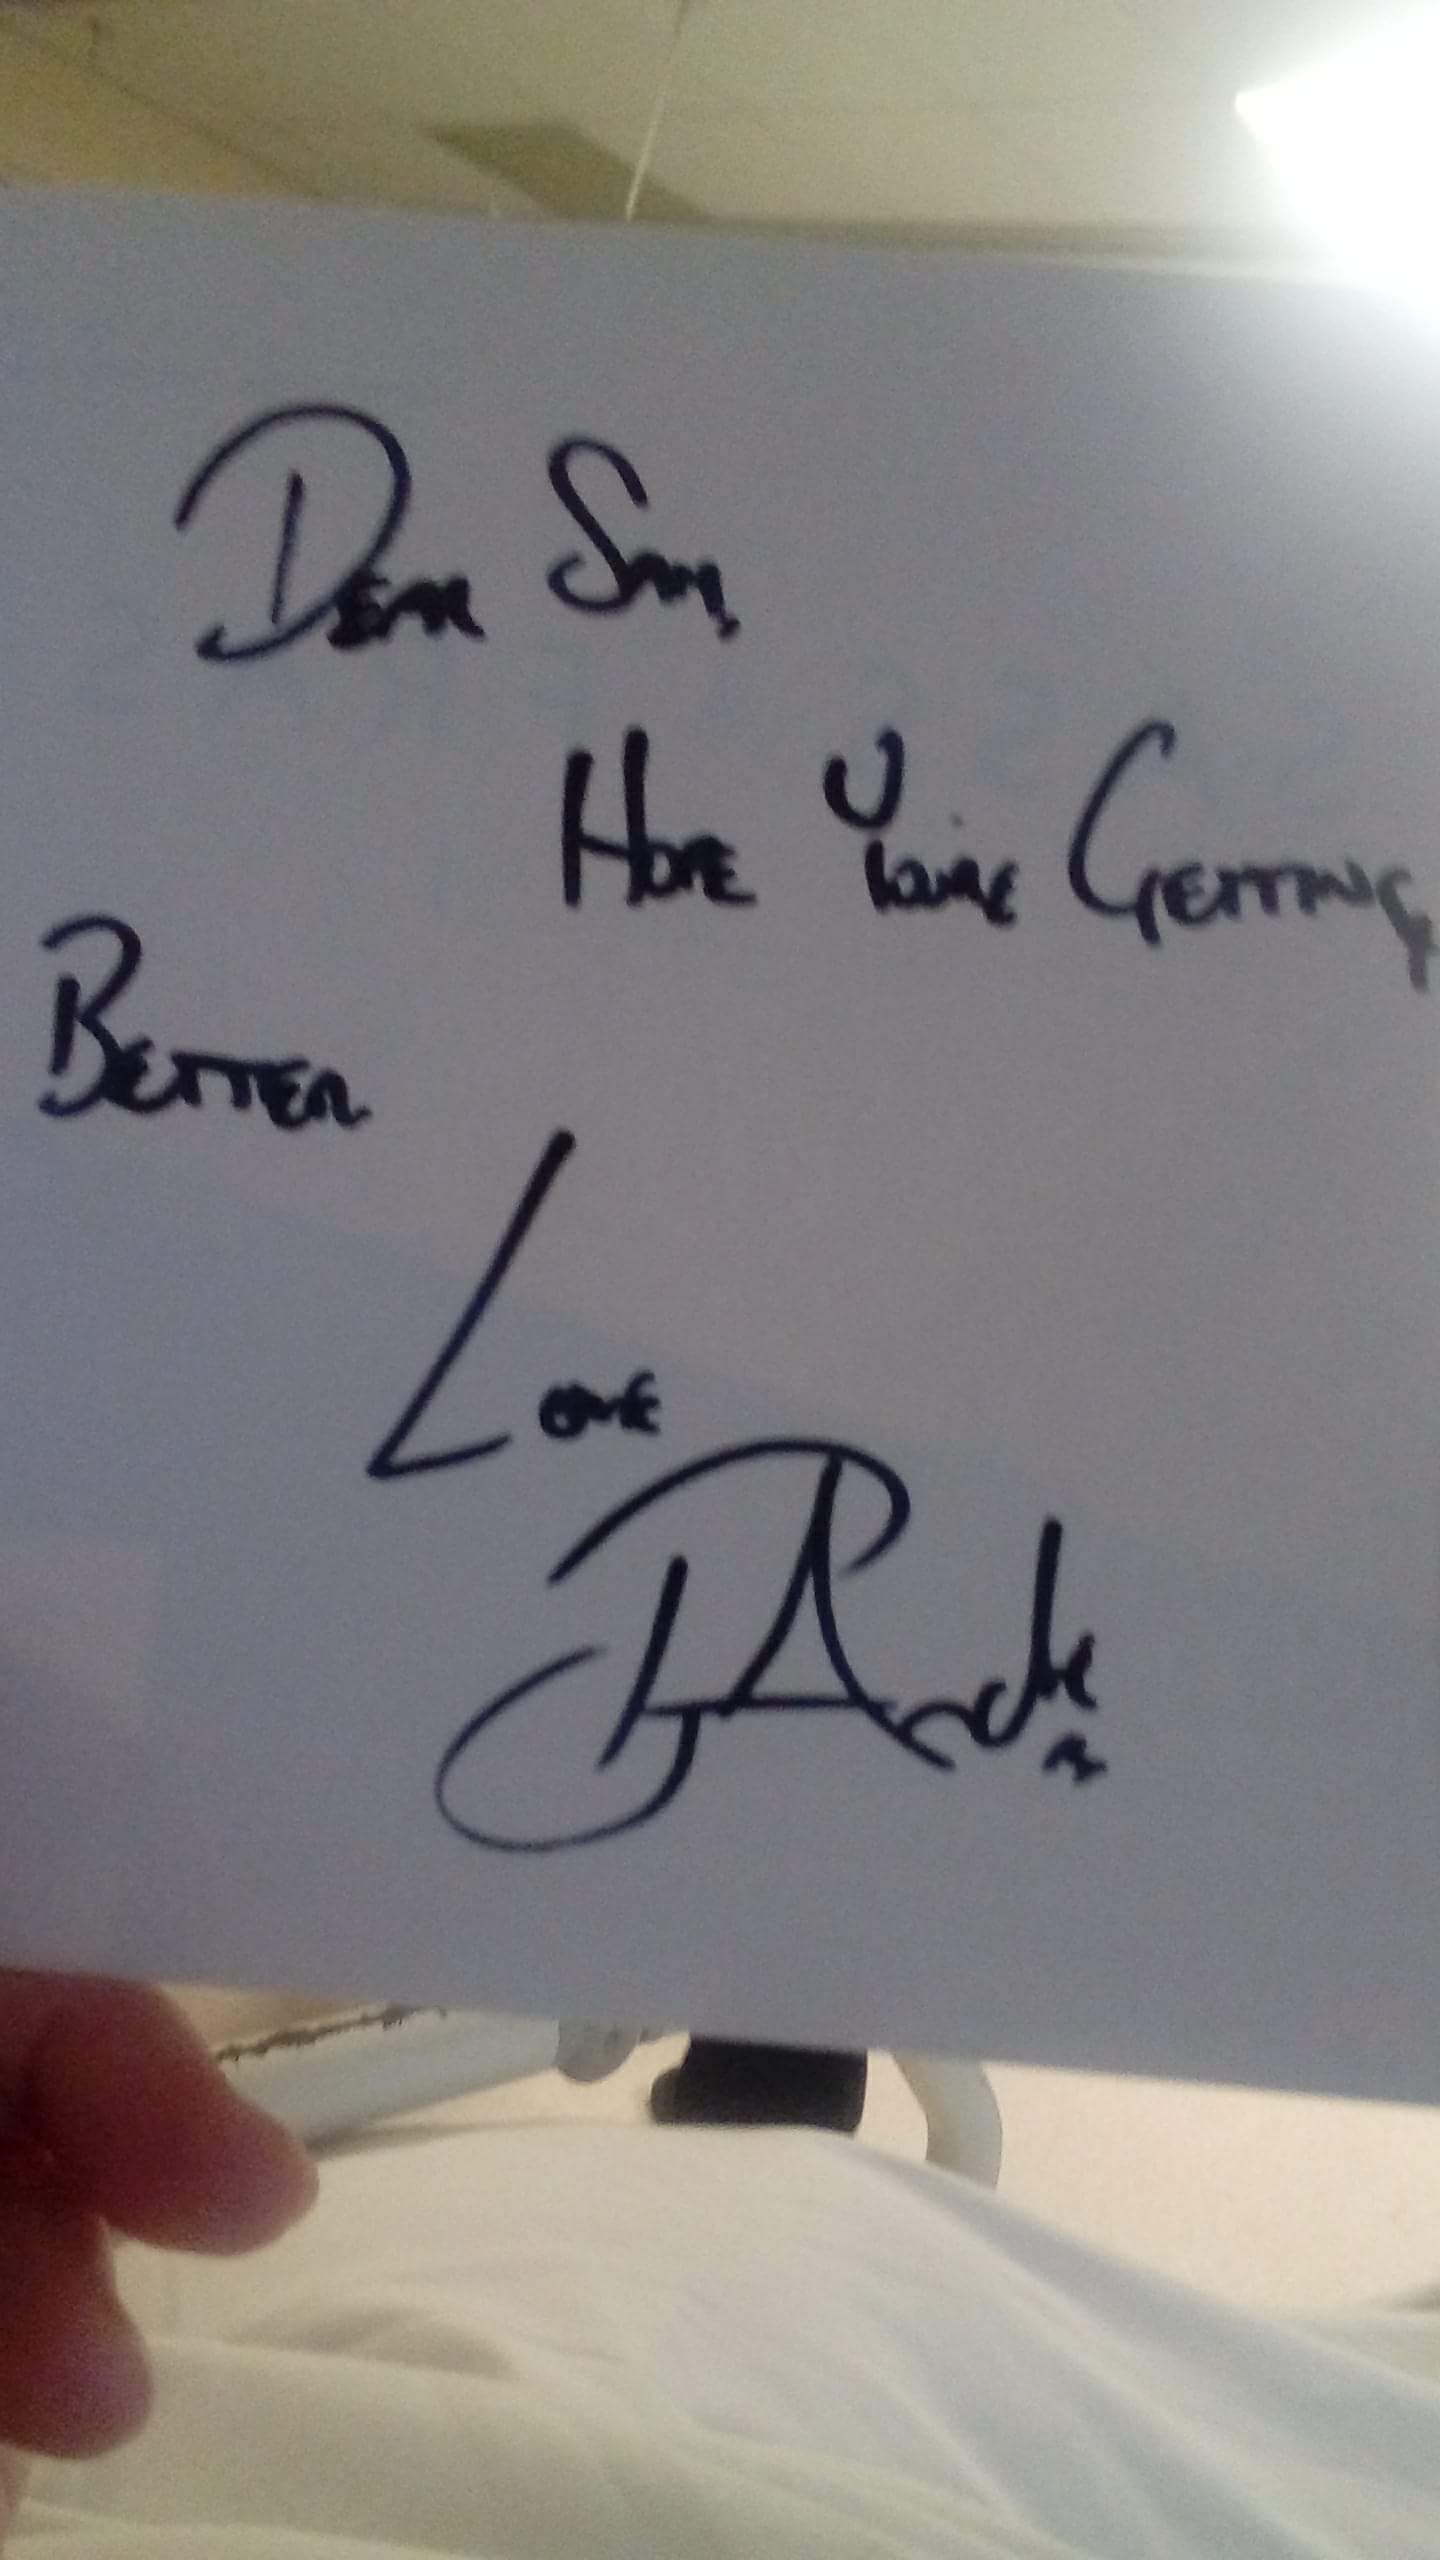 Dear Sam,
Hope You're Getting
Better
Love